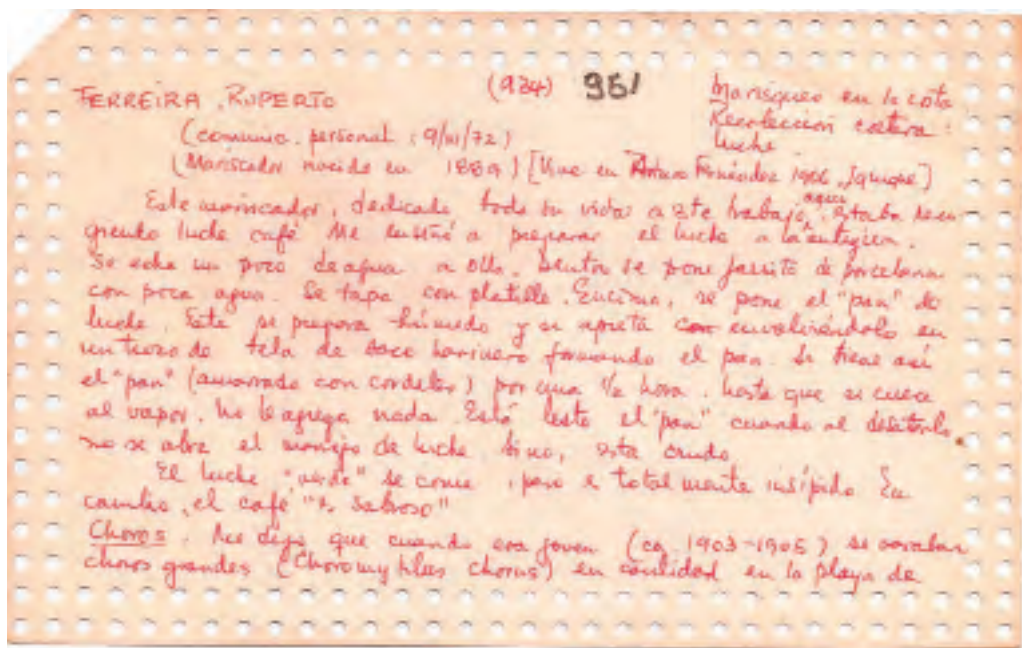 (924) 951
FERREIRA, RUPERTO
Marisqueo en la costa
Recolección costera:
luche
(comunic. personal: 9/III/72)
(Mariscador nacido en 1889) [Vive en Arturo Fernández 1906, Iquique]
Este mariscador, dedicado toda su vida a este trabajo, aquí estaba reco-
giendo luche café. Me enseñó a preparar el luche a la antigua.
Se echa un poco de agua a olla. Dentro se pone jarrito de porcelana
con poca agua. Se tapa con platillo. Encima, se pone el "pan" de
luche. Este se prepara húmedo y se apreta con envolviéndolo en
un trozo de tela de saco harinero formando el pan. Se tiene así
el "pan" (amarrado con cordeles) por una ½ hora, hasta que se cuece
al vapor. No le agrega nada. Está listo el "pan" cuando al desatarlo
no se abre el manojo de luche. Si no, esta crudo
El luche "verde" se come, pero es totalmente insípido. En
cambio, el café "es sabroso"
Choros. Me dijo que cuando era joven (ca 1903-1905) se varaban
choros grandes (Choromytilus chorus) en cantidad en la playa de